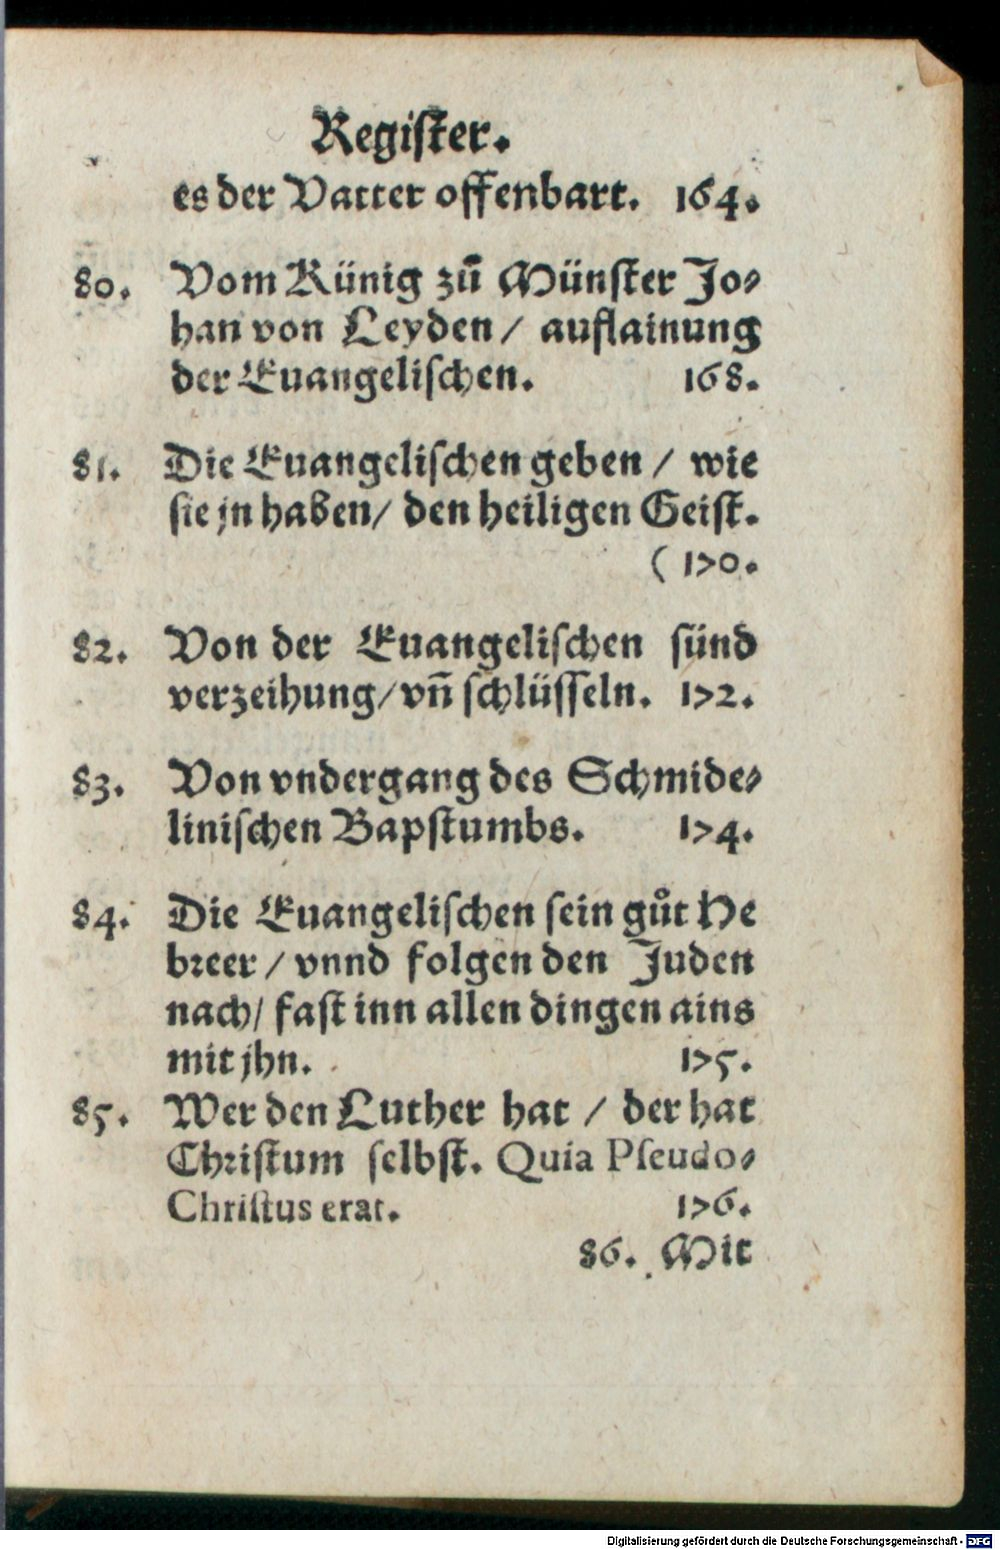 Regiſter.
es der Vatter offenbart. 164.
80. Vom Künig zů Münſter Jo⸗
han von Leyden / auflainung
der Euangeliſchen. 168.
81. Die Euangeliſchen geben / wie
ſie jn haben / den heiligen Geiſt.
( 170.
82. Von der Euangeliſchen ſünd
verzeihung / vñ ſchlüſſeln. 172.
83. Von vndergang des Schmide⸗
liniſchen Bapſtumbs. 174.
84. Die Euangeliſchen ſein gůt He
breer / vnnd folgen den Juden
nach / faſt inn allen dingen ains
mit jhn. 175.
85. Wer den Luther hat / der hat
Chriſtum ſelbſt. Quia Pſeudo⸗
Chriſtus erat. 176.
86. Mit
Digitalisierung gefördert durch die Deutsche Forschungsgemeinschaft - DFG